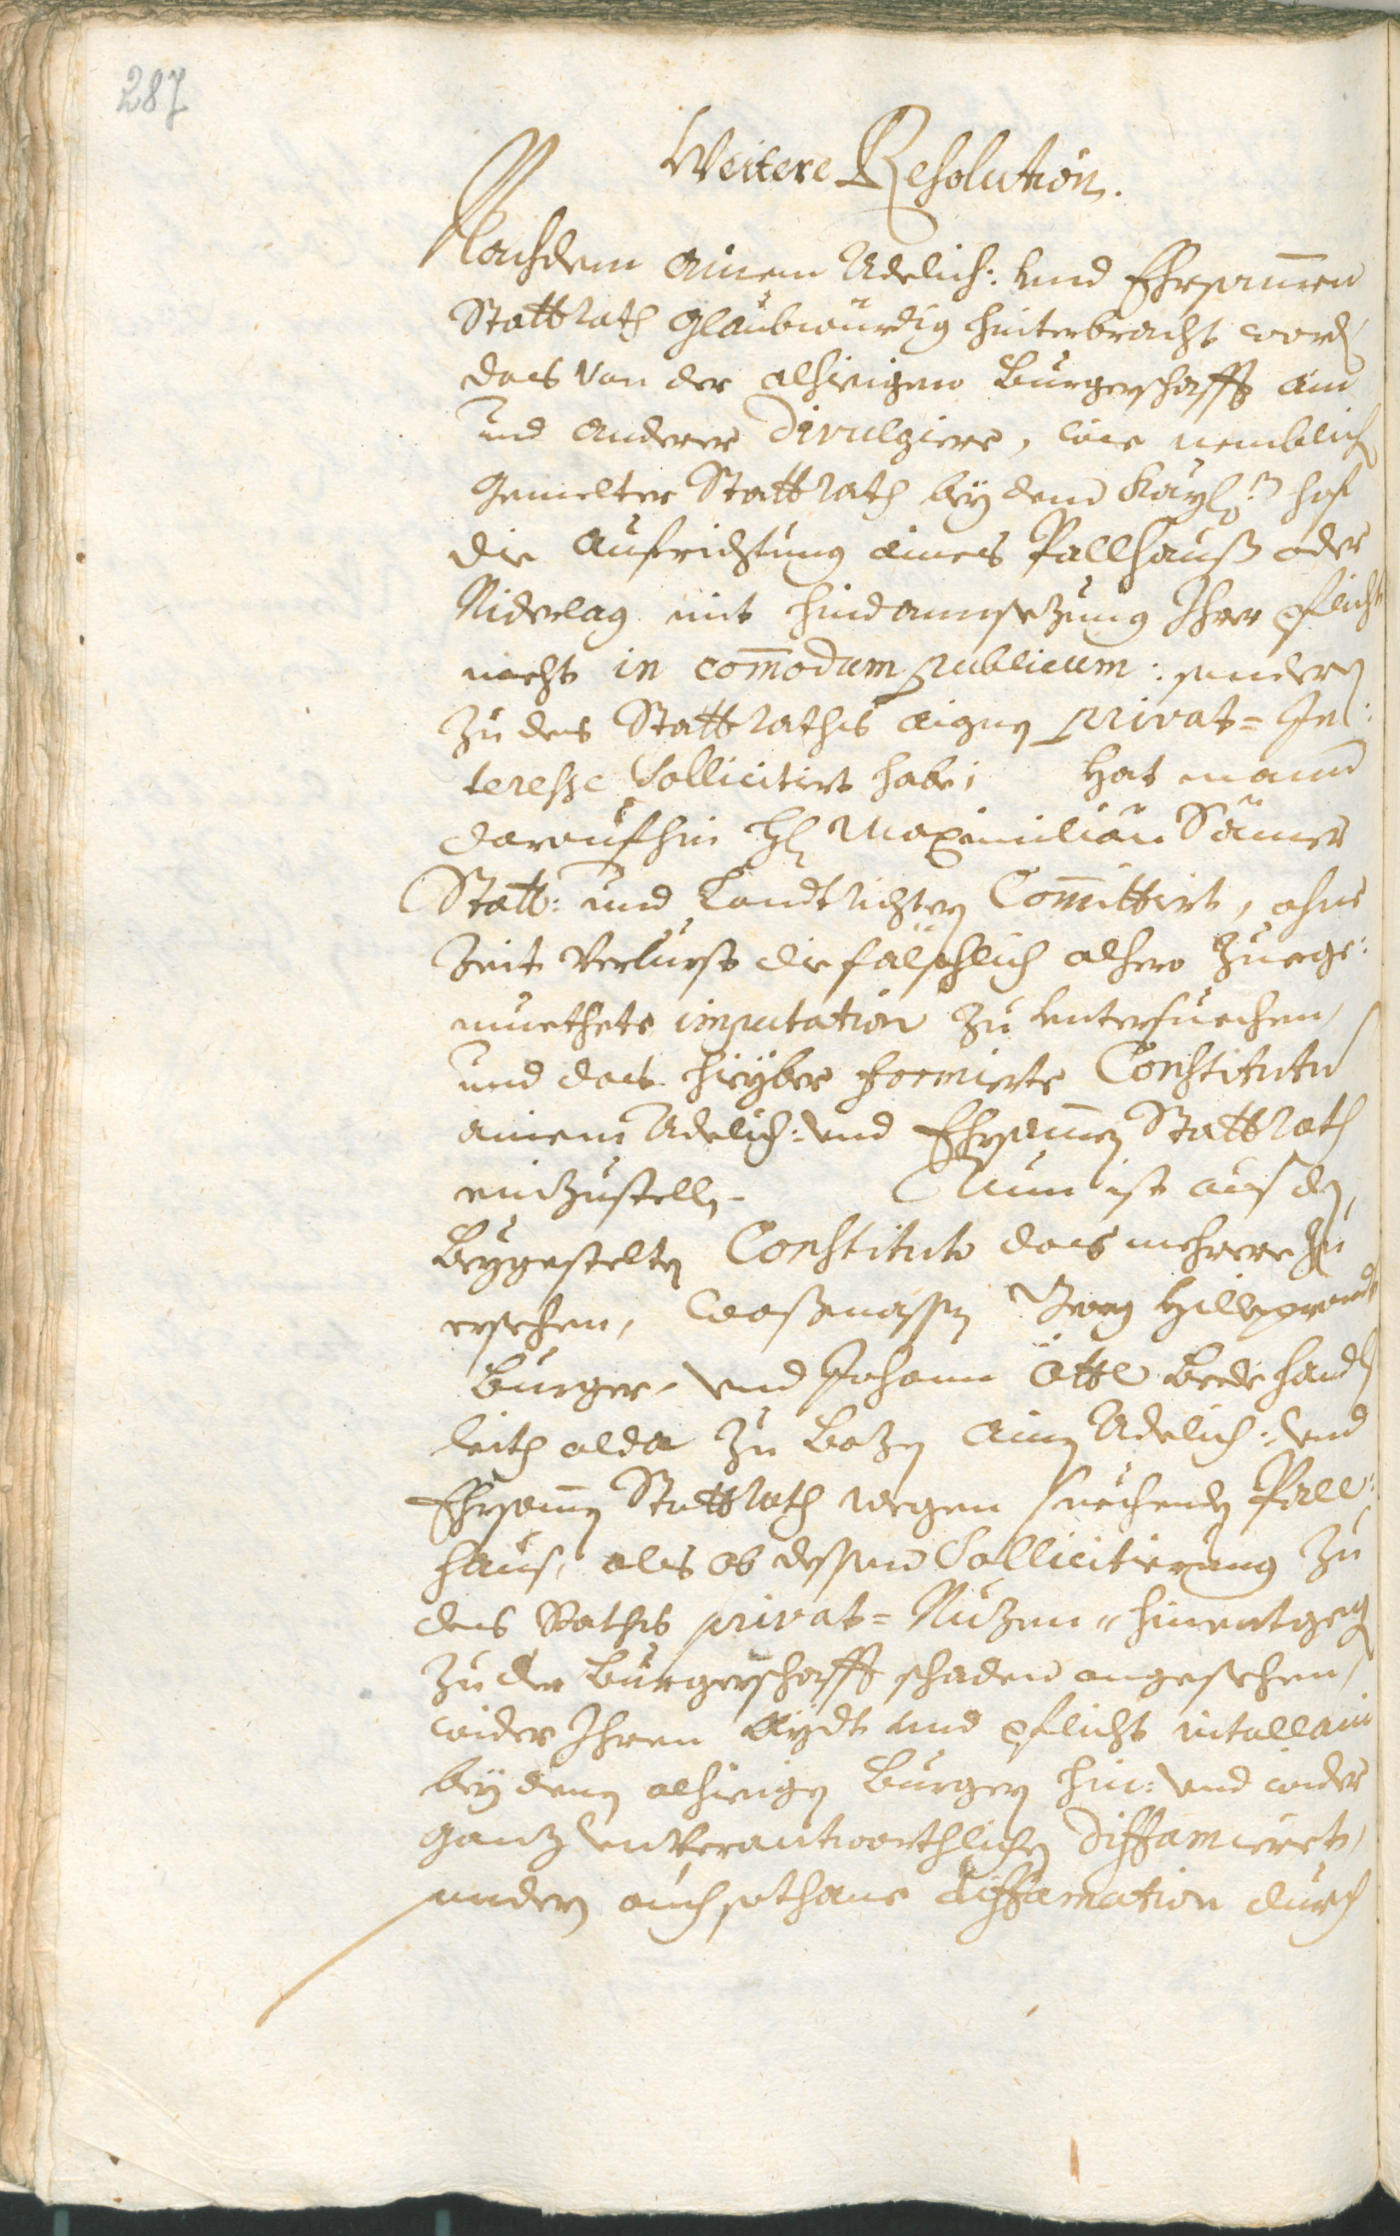 287
Weitere Resolution.
Nachdem ainem Adelich: und Ehrsammen
Stattrath glaubwürdig hinterbracht word
das von der alhieigen Burgerschafft ain
und anderer divulgiere, wie nemblich
gemelter Stattrath bey dem Kayl: hof
die aufrichtung aines Pallhauß oder
Niderlag mit hindannsezung Ihrer pflicht
nicht in com̄odum publicum: sondern
zu des Stattrathes aignen privat= In:
teresse Sollicitiert habe; Hat mann
daraufhin H Maximilian
Statt: und Landtrichtern Com̄ittirt, ohne
Zeit verlurst die fälschlich alhero zuege:
muethete imputation zu untersuechen,
und das hieryber formierte Constitutum
ainem Adelich: und Ehrsammen Stattrath
einzustellen. Nun ist aus den
beygestelten Constituto das mehrere zu
ersehen, wasmassen Georg Hilleprandt
Burger, und Johann Öttl beede handls
leith alda zu Bozen ainen Adelich: und
Ehrsammen Stattrath wegen suechenden Pall:
haus, als ob dessen Sollicitierung zu
des Raths privat= Nuzen, hinentgegen
zu der Burgerschafft schaden angesehen,
wider Ihren Aydt und pflicht nit allain
bey denen alhieigen Burgern hin: und wider
ganz unverantworthlichen diffamieret,
sondern auch sothane diffamation durch